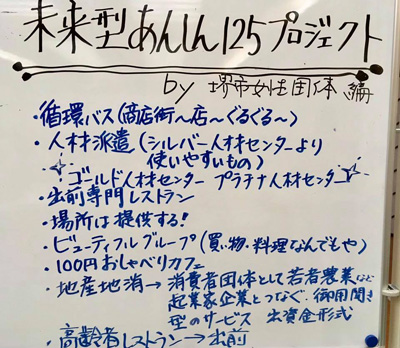 未来型あんしん125プロジェクト
by 堺市女性団体 編
・循環バス(商店街〜店〜ぐるぐる〜)
・人材派遣(シルバー人材センターより
使いやすいもの)
ゴールド人材センター プラチナ人材センター
・出前専門レストラン
・場所は提供する!
・ビューティフルグループ(買い物・料理なんでもや)
・100円おしゃべりカフェ
・地産地消→消費者団体として若者農業など
起業家企業とつなぐ. 御用聞き
型のサービス 出資金形式
・高齢者レストラン→出前